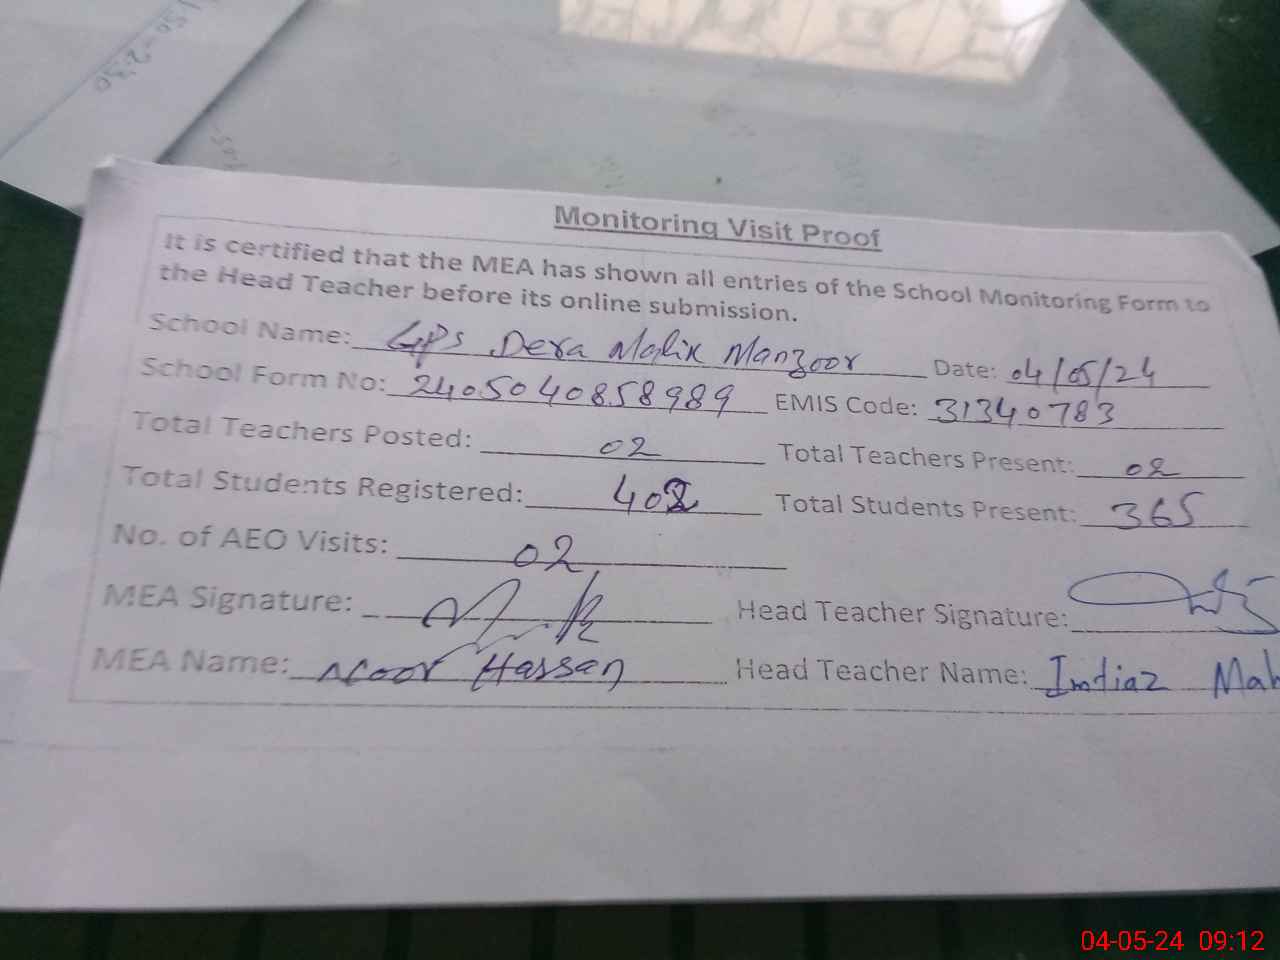 1:50-2:30
Monitoring Visit Proof
It is certified that the MEA has shown all entries of the School Monitoring Form to
the Head Teacher before its online submission.
School Name: GPS Dera Malik Manzoor Date: 04/05/24
School Form No: 2405040858989 EMIS Code: 31340783
Total Teachers Posted: 02 Total Teachers Present: 02
Total Students Registered: 402 Total Students Present: 365
No. of AEO Visits: 02
MEA Signature: Head Teacher Signature:
MEA Name: Noor Hassan Head Teacher Name: Imtiaz Mah
04-05-24 09:12